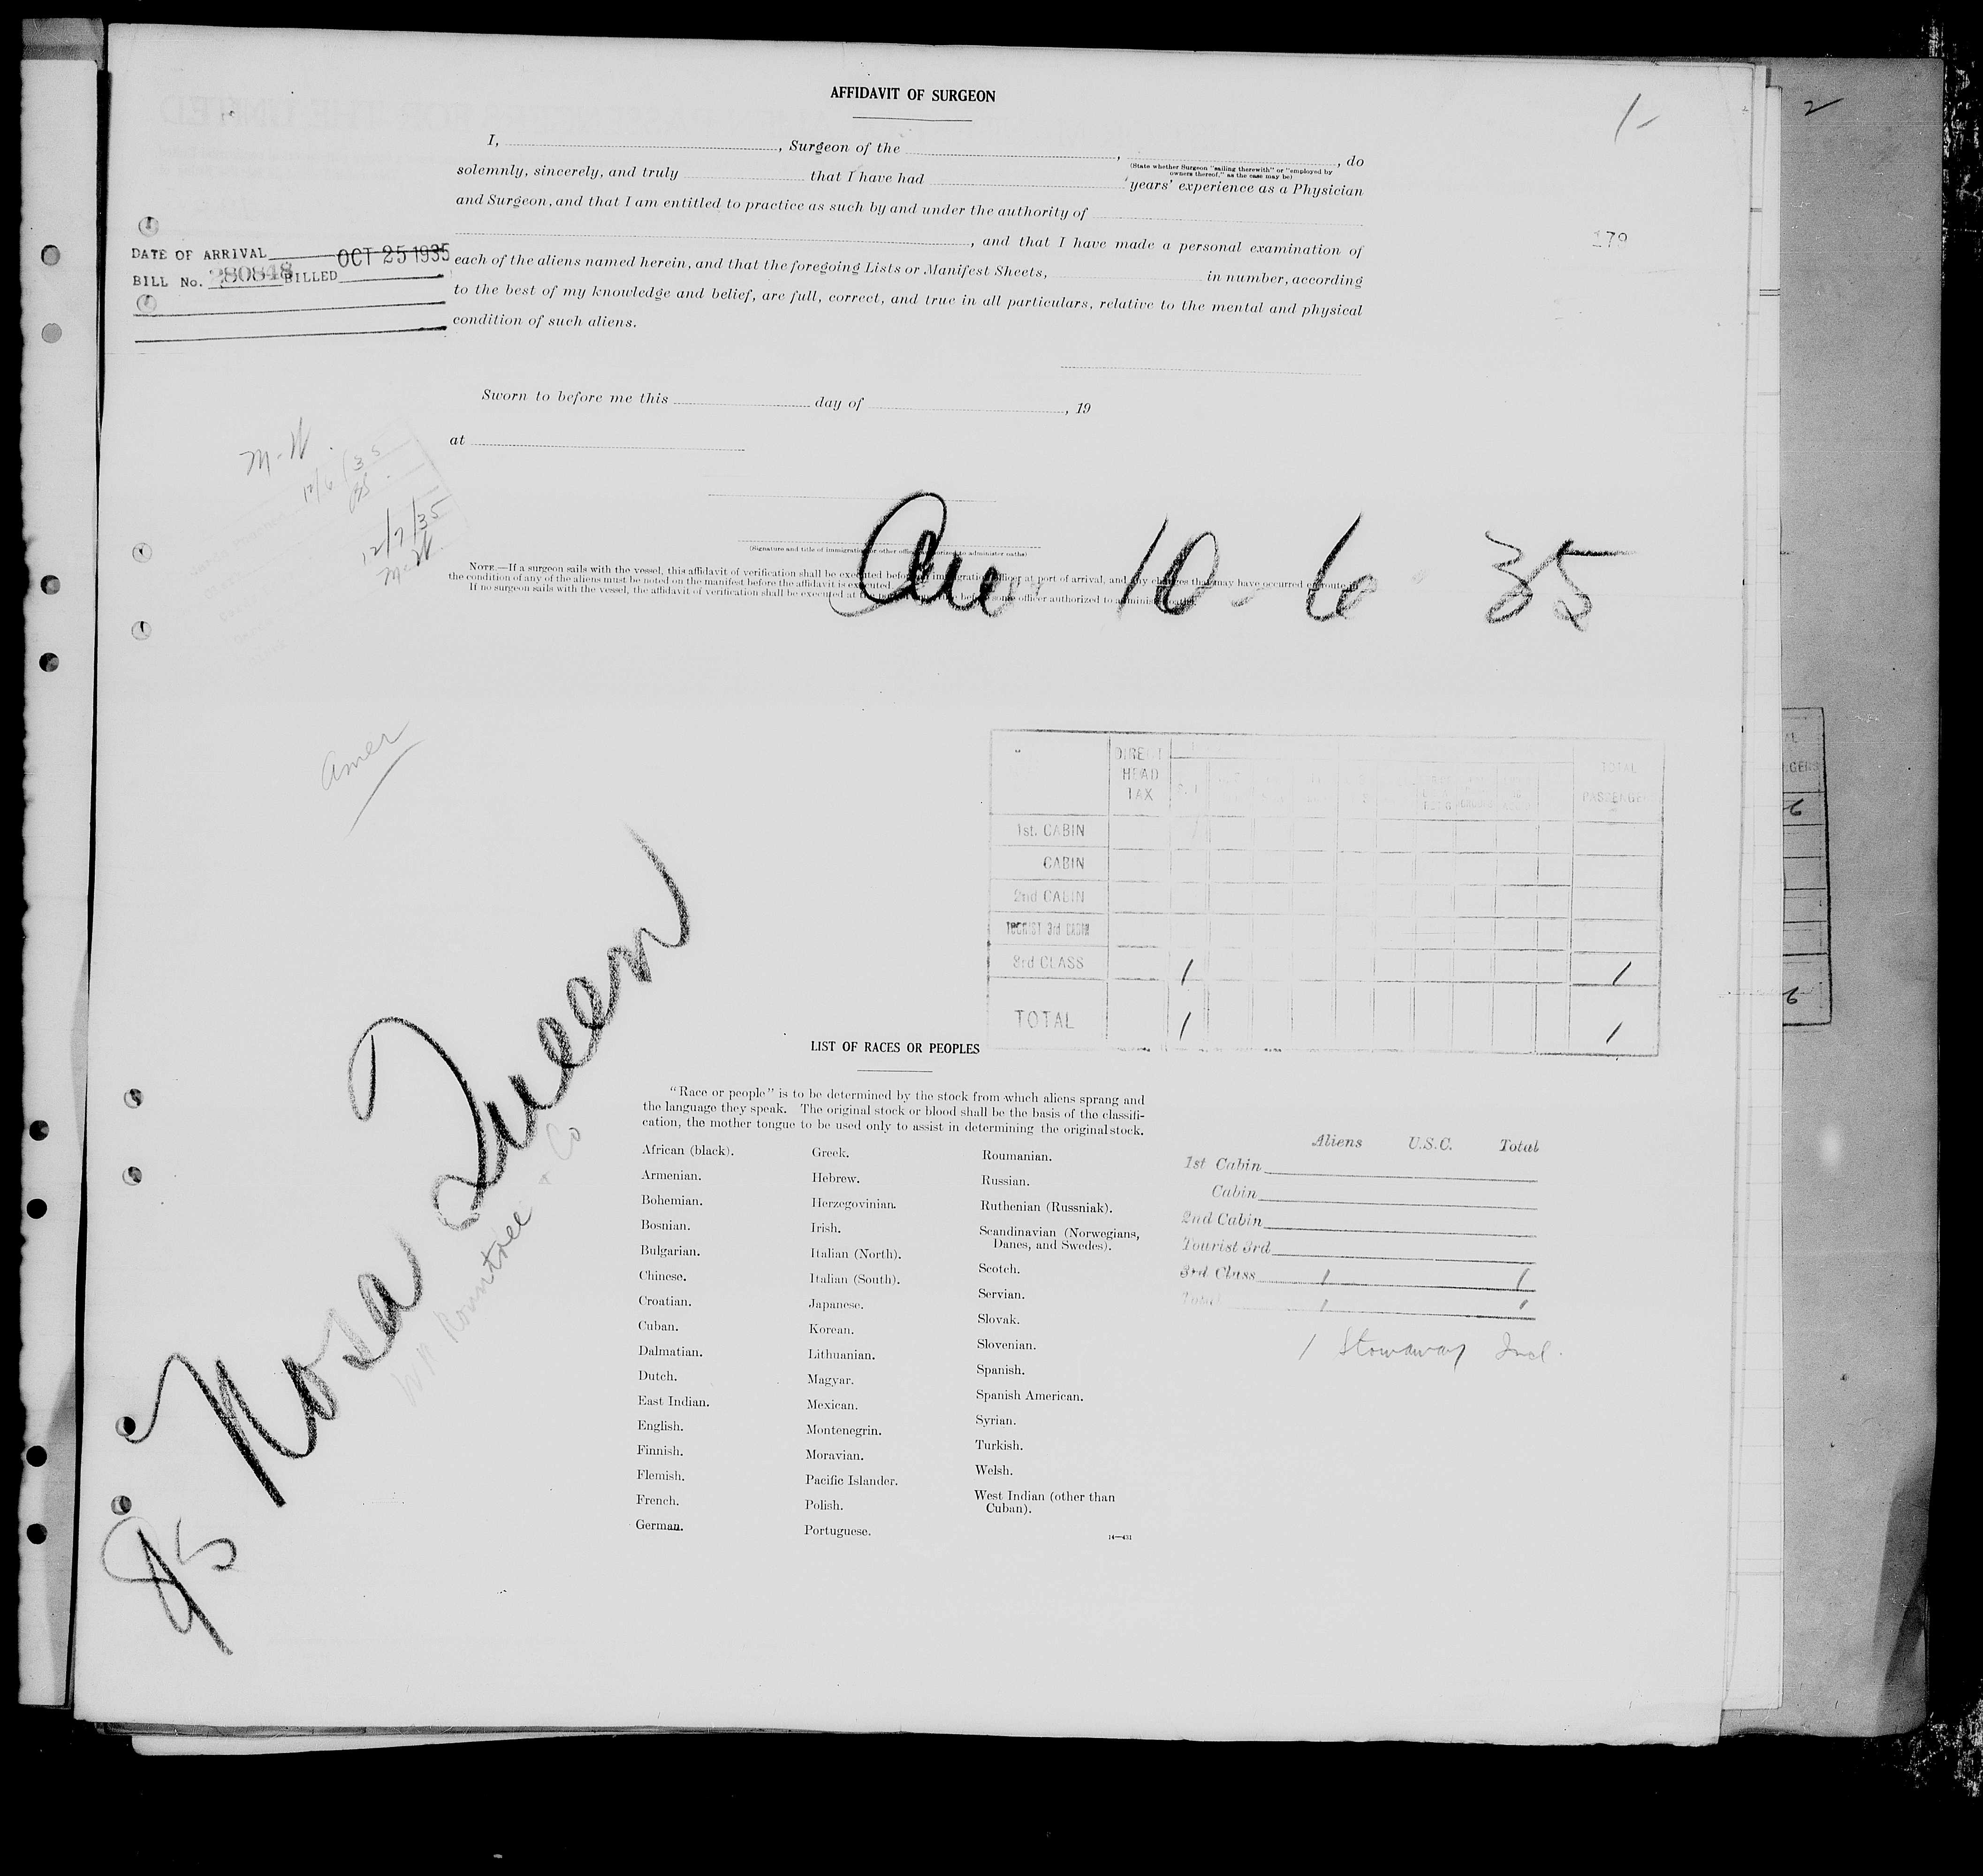 AFFIDAVIT OF SURGEON
1-
2
I, , Surgeon of the , , do
(State whether Surgeon "sailing therewith" or "employed by
owners thereof," as the case may be)
solemnly, sincerely, and truly that I have had years' experience as a Physician
and Surgeon, and that I am entitled to practice as such by and under the authority of
, and that I have made a personal examination of
179
DATE OF ARRIVAL OCT 25 1935
each of the aliens named herein, and that the foregoing Lists or Manifest Sheets, in number, according
BILL No. 280848 BILLED
to the best of my knowledge and belief, are full, correct, and true in all particulars, relative to the mental and physical
condition of such aliens.
Sworn to before me this day of , 19
at
M-W
12/6/35
12/7/35
M-W
(Signature and title of immigration or other officer authorized to administer oaths)
NOTE.—If a surgeon sails with the vessel, this affidavit of verification shall be executed before immigration officer at port of arrival, and any changes that may have occurred en route in
the condition of any of the aliens must be noted on the manifest before the affidavit is executed.
If no surgeon sails with the vessel, the affidavit of verification shall be executed at officer authorized to administer
10-6 35
Amer
DIRECT HEAD TAX
TOTAL PASSENGERS
1st. CABIN
CABIN
2nd CABIN
TOURIST 3rd CABIN
3rd CLASS 1 1
TOTAL 1 1
6
6
Nosa Queen
W R Rountree & Co
LIST OF RACES OR PEOPLES
"Race or people" is to be determined by the stock from which aliens sprang and
the language they speak. The original stock or blood shall be the basis of the classifi-
cation, the mother tongue to be used only to assist in determining the original stock.
African (black).
Armenian.
Bohemian.
Bosnian.
Bulgarian.
Chinese.
Croatian.
Cuban.
Dalmatian.
Dutch.
East Indian.
English.
Finnish.
Flemish.
French.
German.
Greek.
Hebrew.
Herzegovinian.
Irish.
Italian (North).
Italian (South).
Japanese.
Korean.
Lithuanian.
Magyar.
Mexican.
Montenegrin.
Moravian.
Pacific Islander.
Polish.
Portuguese.
Roumanian.
Russian.
Ruthenian (Russniak).
Scandinavian (Norwegians,
Danes, and Swedes).
Scotch.
Servian.
Slovak.
Slovenian.
Spanish.
Spanish American.
Syrian.
Turkish.
Welsh.
West Indian (other than
Cuban).
14—431
Aliens U.S.C. Total
1st Cabin
Cabin
2nd Cabin
Tourist 3rd
3rd Class 1 1
Total 1 1
1 Stowaway Incl.